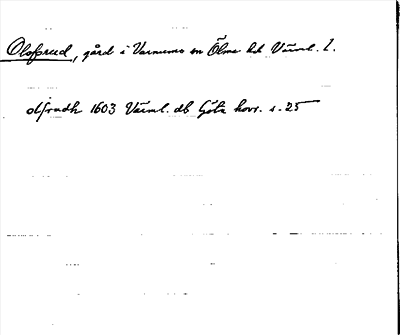 Olofsrud, gård i Varnums sn Ölme hd Värml. l.
olfrudh 1603 Värml. db Göta hovr. s. 25